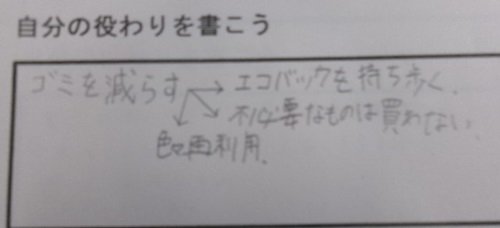 自分の役わりを書こう
ゴミを減らす→エコバックを持ち歩く.
不必要なものは買わない.
利用.